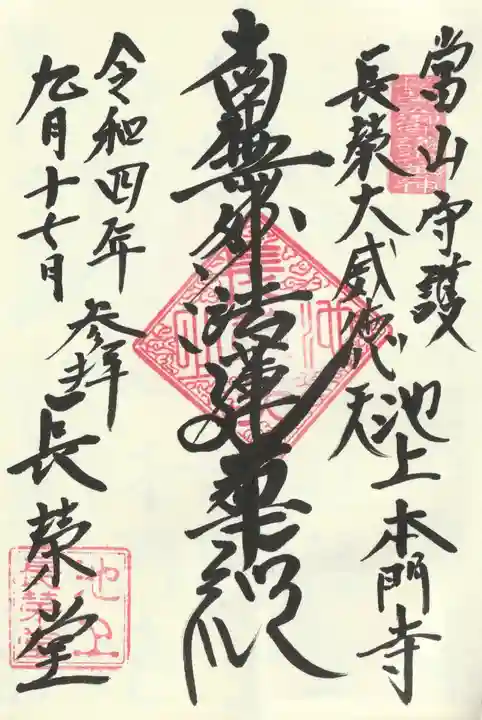 當山守護
池上本門寺
長榮大威徳天
南無妙法蓮華経
令和四年
九月十七日
参拝
長榮堂
池上
長栄堂